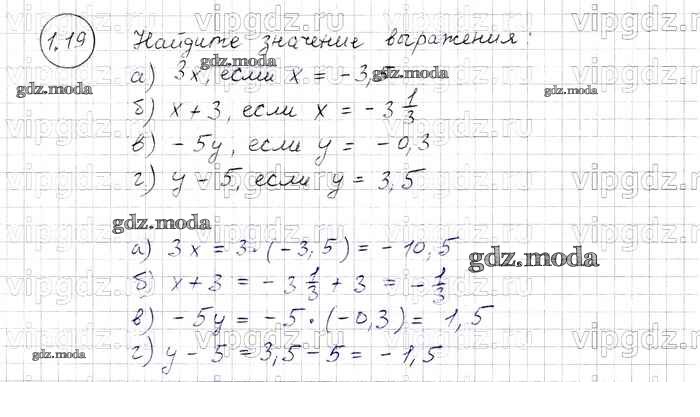 1.19 Найдите значение выражения:
а) 3x, если x = -3,5
б) x + 3, если x = -3 1/3
в) -5y, если y = -0,3
г) y - 5, если y = 3,5
а) 3x = 3·(-3,5) = -10,5
б) x + 3 = -3 1/3 + 3 = -1/3
в) -5y = -5·(-0,3) = 1,5
г) y - 5 = 3,5 - 5 = -1,5
gdz.moda
gdz.moda
gdz.moda
gdz.moda
gdz.moda
gdz.moda
gdz.moda
vipgdz.ru
vipgdz.ru
vipgdz.ru